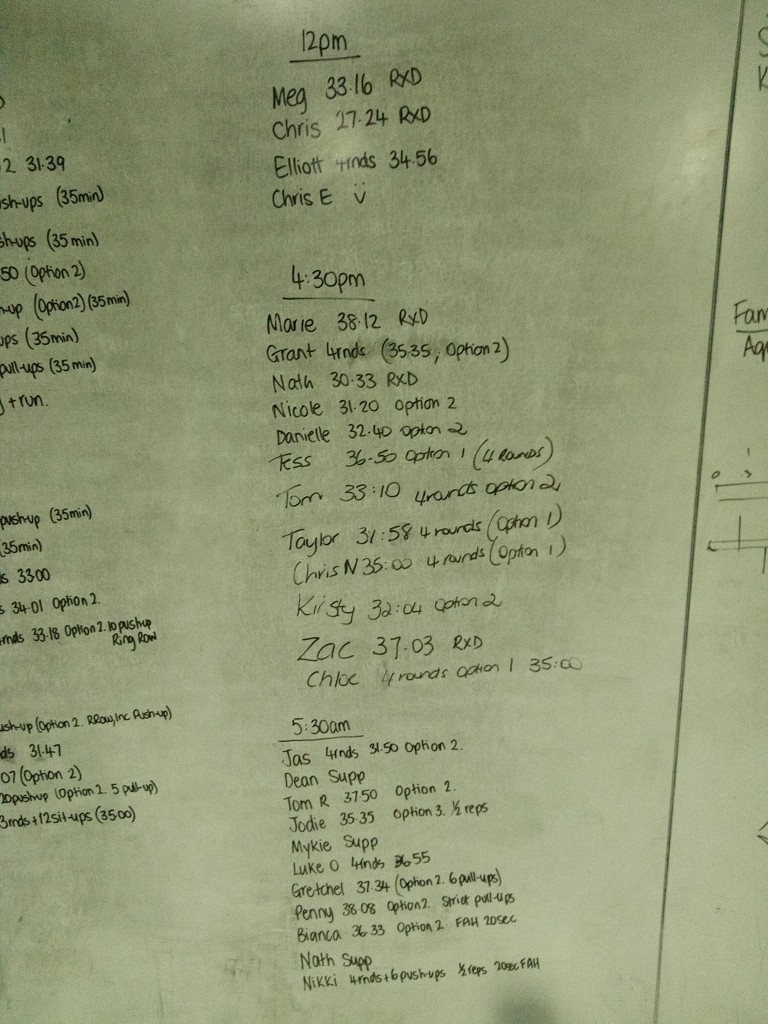 2 31.39
sh-ups (35min)
sh-ups (35 min)
50 (Option 2)
n-up (Option2) (35min)
ups (35 min)
pull-ups (35 min)
+ run.
push-up (35min)
(35min)
s 33.00
s 34.01 Option 2.
rnds 33.18 Option 2. 10 push up
Ring Row
ush-up (Option 2. RRow, Inc Push-up)
ds 31.47
07 (Option 2)
20 push up (Option 2. 5 pull-up)
3rnds + 12 sit-ups (35.00)
12pm
Meg 33.16 RXD
Chris 27.24 RXD
Elliott 4rnds 34.56
Chris E
4:30pm
Marie 38.12 RXD
Grant 4rnds (35.35, Option 2)
Nath 30.33 RXD
Nicole 31.20 Option 2
Danielle 32.40 Option 2
Tess 36.50 Option 1 (4 Rounds)
Tom 33:10 4rounds Option 2
Taylor 31:58 4 rounds (Option 1)
Chris N 35:00 4 rounds (Option 1)
Kirsty 32:04 Option 2
Zac 37.03 RXD
Chloe 4 rounds Option 1 35:00
5:30am
Jas 4rnds 31.50 Option 2.
Dean Supp
Tom R 37.50 Option 2.
Jodie 35.35 Option 3. ½ reps
Mykie Supp
Luke O 4rnds 36.55
Gretchel 37.34 (Option 2. 6 pull-ups)
Penny 38.08 Option 2. Strict pull-ups
Bianca 36.33 Option 2 FAH 20sec
Nath Supp
Nikki 4rnds + 6 push-ups ½ reps 20sec FAH
Fam